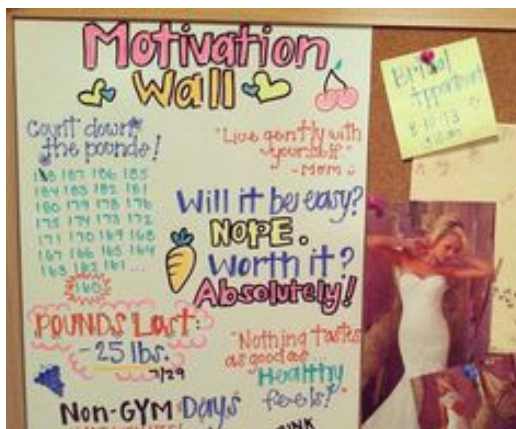 Motivation
Wall
Count down
the pounds!
188 187 186 185
184 183 182 181
180 179 178 176
175 174 173 172
171 170 169 168
167 166 165 164
163 162 161...
160
POUNDS Lost:
-25 lbs.
7/29
Non-GYM Days
"Live gently with
yourself."
-Mom
Will it be easy?
NOPE.
Worth it?
Absolutely!
"Nothing tastes
as good as
Healthy
feels!"
Bridal
Appointment